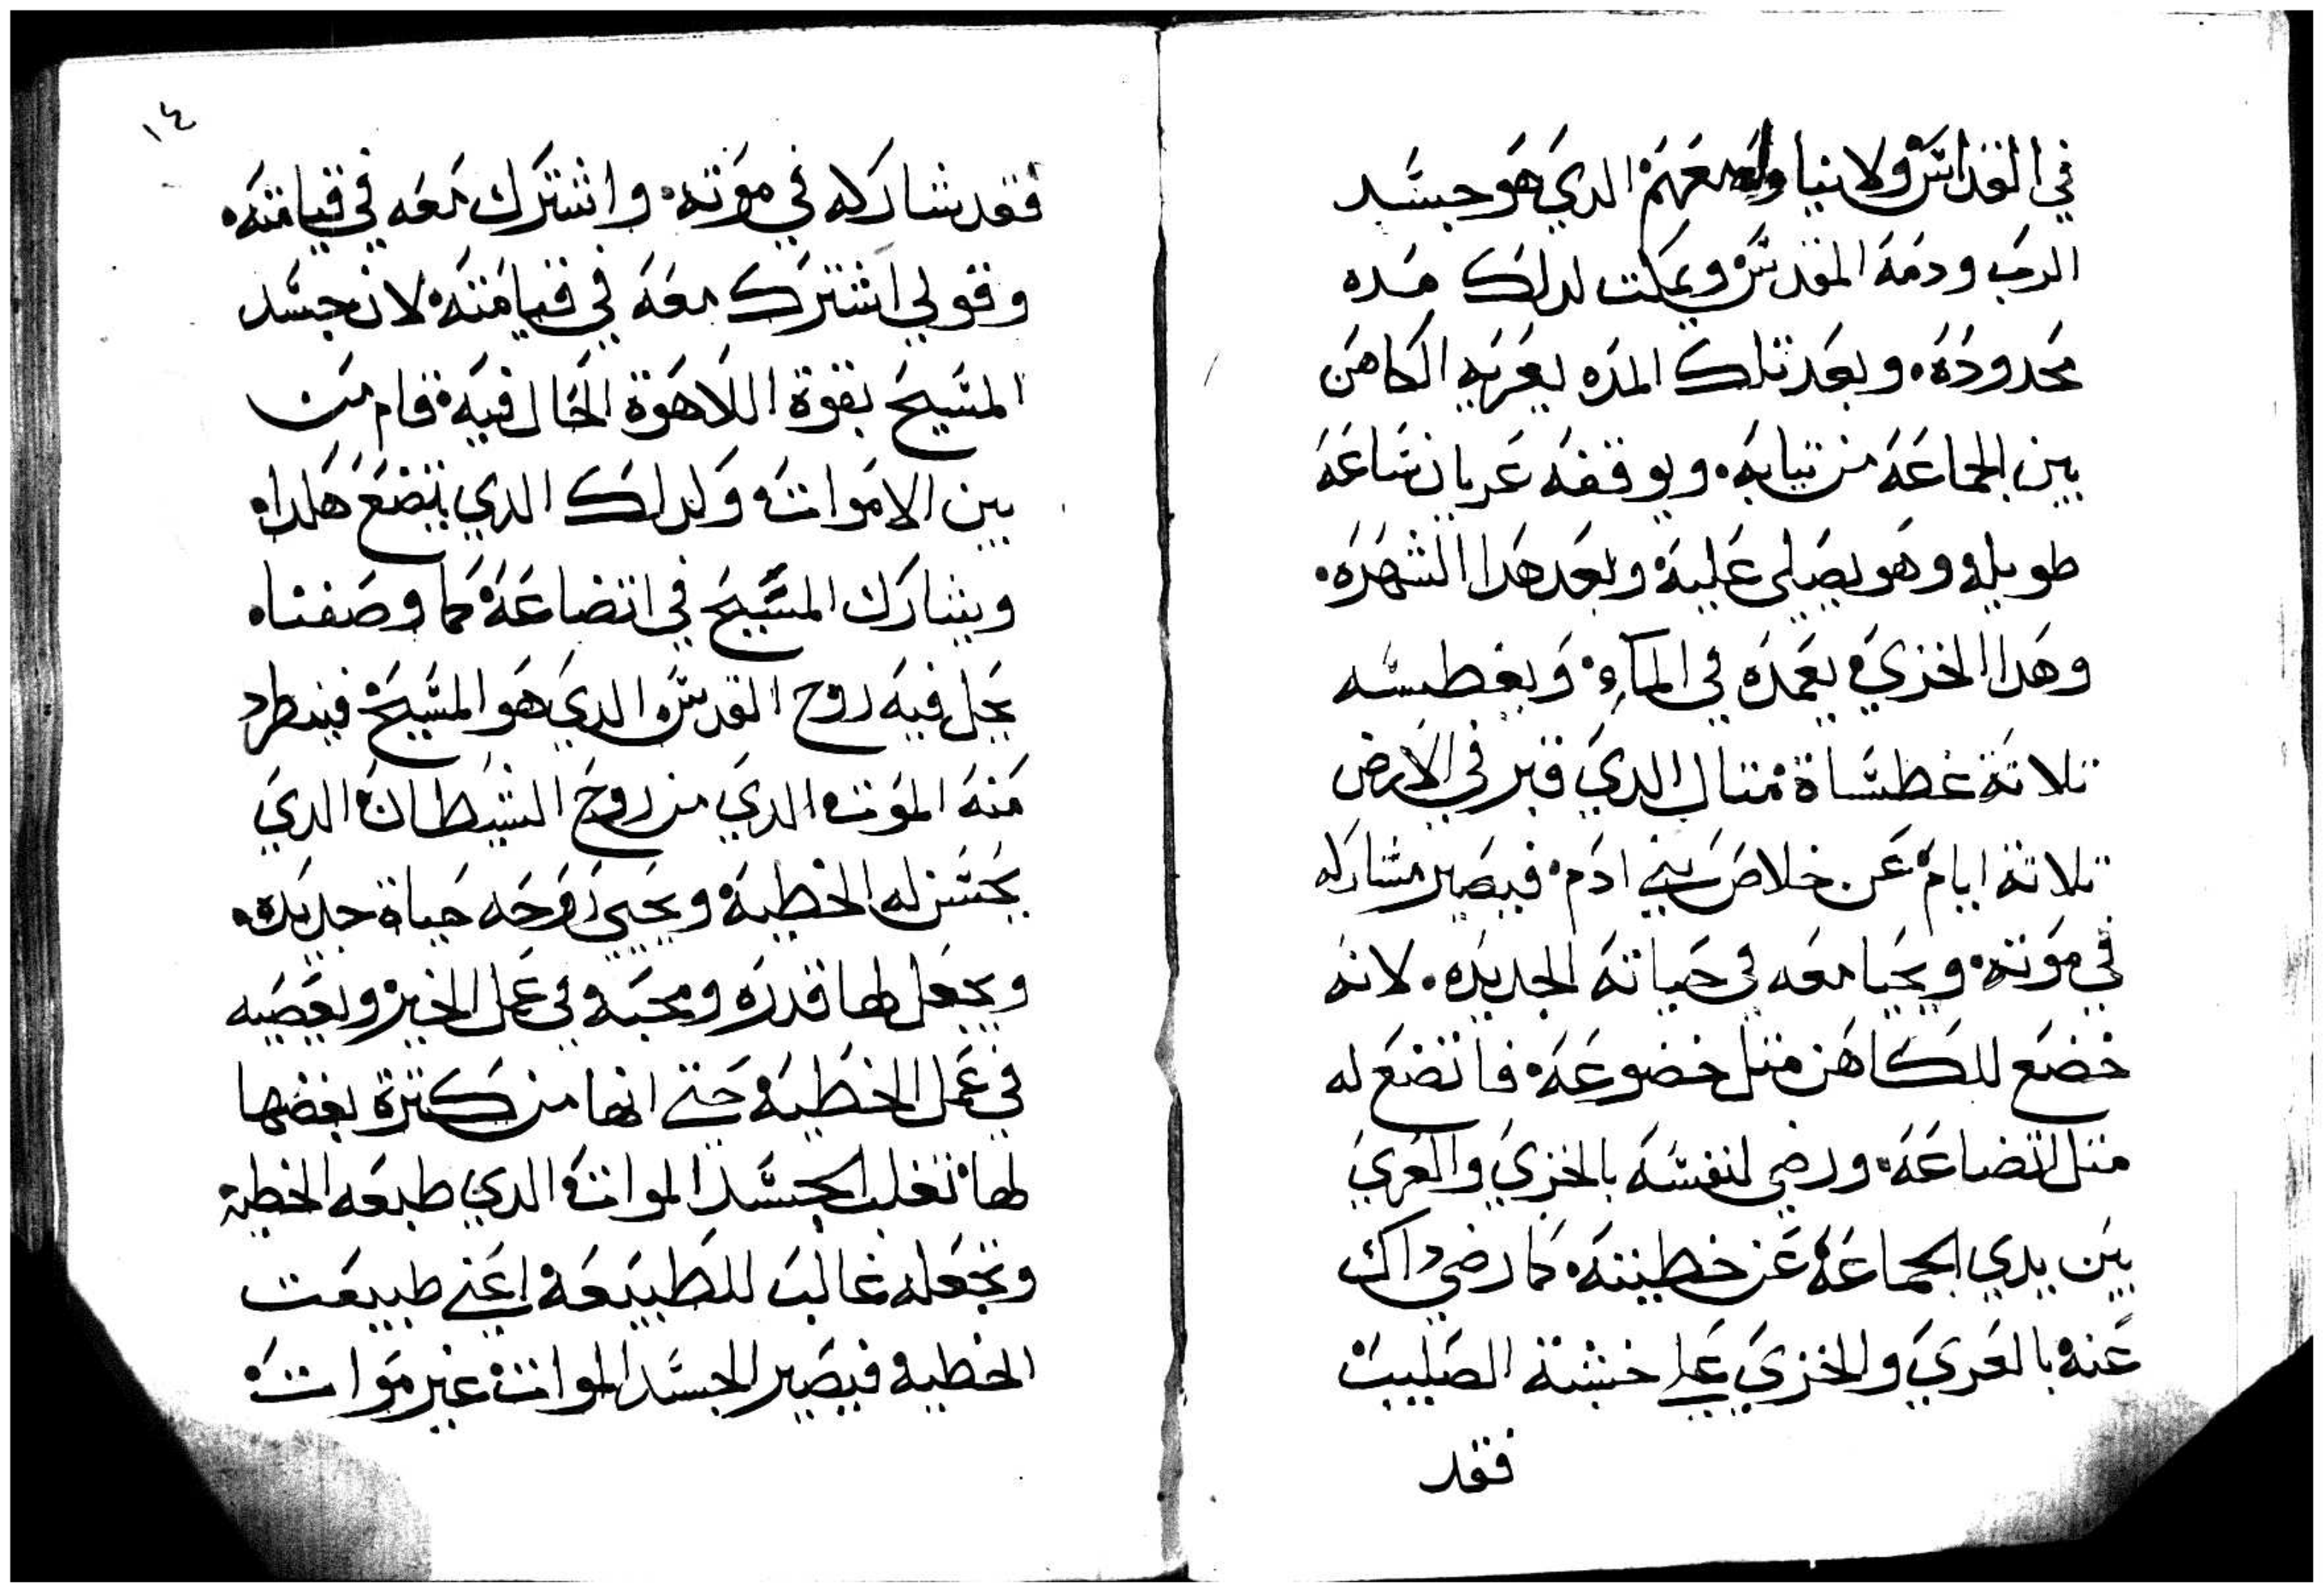 في القداس ولا نيا معهم الدي هو جسد
الرب ودمه المقدس ويمكت لدلك مده
محدوده. وبعد تلك المده يعريه الكاهن
بين الجماعه من تيابه. ويوقفه عريان ساعه
طويله وهو يصلي عليه وبعد هدا الشهره.
وهدا الخزي يعمده في الماء. ويغطسه
تلاتة غطساة متال الدي قبر في الارض
تلاتة ايام عن خلاص بني ادم. فيصير مشاركه
في موته. ويحيا معه في حياته الجديده. لانه
خضع للكاهن متل خضوعه. فاتضع له
متل اتضاعه. ورضي لنفسه بالخزي والعري
بين يدي الجماعه عن خطيته. كما رضي داك
عنه بالعري والخزي علي خشبة الصليب
فقد
١٤
فقد شاركه في موته. واشترك معه في قيامته.
وقولي اشترك معه في قيامته. لان جسد
المسيح بقوة اللاهوة الحال فيه. قام من
بين الاموات. ولدلك الدي يتضع هكدا.
ويشارك المسيح في اتضاعه كما وصفنا.
يحل فيه روح القدس الدي هو المسيح فينطرد
منه الموت الدي من روح الشيطان الدي
يحسن له الخطيه ويحيي روحه حياة جديده.
ويجعل لها قدره ومحبه في عمل الخير وبغضيه
في عمل الخطيه حتي انها من كترة بغضها
لها تغلب الجسد الموات الدي طبعه الخطية
وتجعله غالب للطبيعه اعني طبيعت
الخطيه فيصير الجسد الموات غير موات